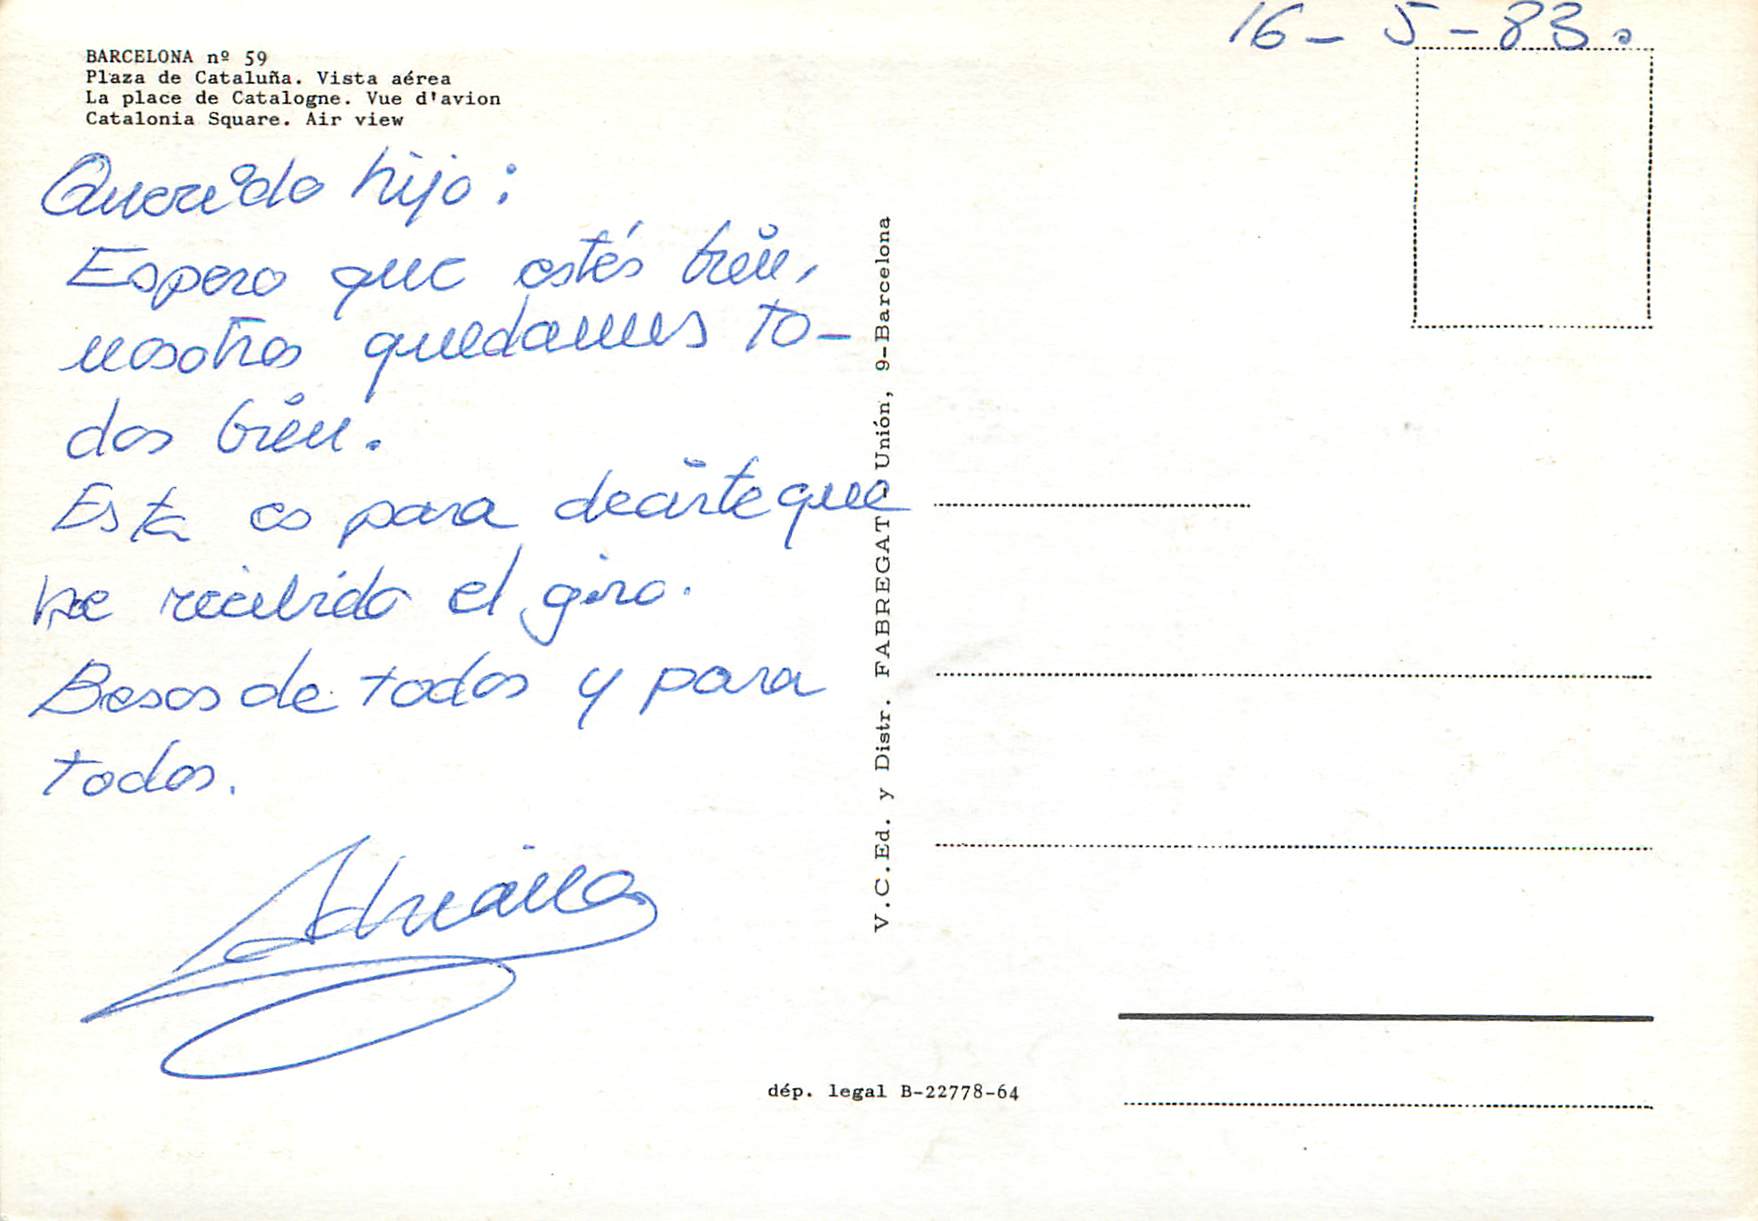 16-5-83.
BARCELONA nº 59
Plaza de Cataluña. Vista aérea
La place de Catalogne. Vue d'avion
Catalonia Square. Air view
Querido hijo:
Espero que estés bien,
nosotros quedamos to-
dos bien.
Esta es para decirte que
he recibido el giro.
Besos de todos y para
todos.
Adriana
V.C.Ed. y Distr. FABREGAT - Unión, 9-Barcelona
dép. legal B-22778-64